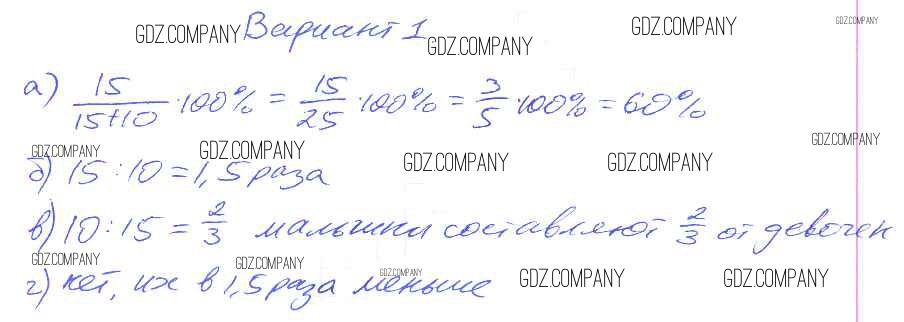 Вариант 1
а) 15/(15+10) · 100% = 15/25 · 100% = 3/5 · 100% = 60%
б) 15 : 10 = 1,5 раза
в) 10 : 15 = 2/3 малышки составляют 2/3 от девочек
г) нет, их в 1,5 раза меньше
GDZ.COMPANY GDZ.COMPANY GDZ.COMPANY GDZ.COMPANY
GDZ.COMPANY
GDZ.COMPANY GDZ.COMPANY GDZ.COMPANY GDZ.COMPANY
GDZ.COMPANY GDZ.COMPANY GDZ.COMPANY GDZ.COMPANY GDZ.COMPANY